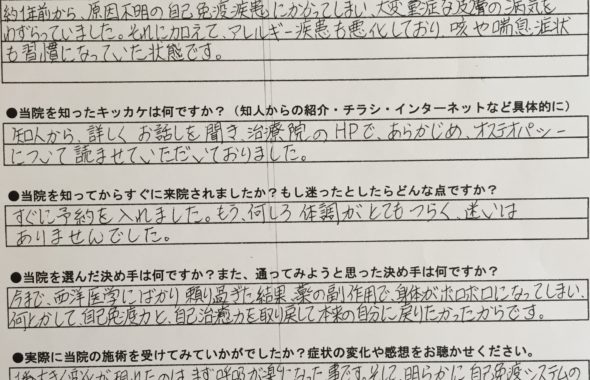 約1年前から、原因不明の自己免疫疾患にかかってしまい、大変重症な皮膚の病気を
わずらっていました。それに加えて、アレルギー疾患も悪化しており、咳や喘息症状
も習慣になっていた状態です。
●当院を知ったキッカケは何ですか？（知人からの紹介・チラシ・インターネットなど具体的に）
知人から、詳しくお話しを聞き、治療院のHPで、あらかじめ、オステオパシー
について読ませていただいておりました。
●当院を知ってからすぐに来院されましたか？もし迷ったとしたらどんな点ですか？
すぐに予約を入れました。もう、何しろ体調がとてもつらく、迷いは
ありませんでした。
●当院を選んだ決め手は何ですか？また、通ってみようと思った決め手は何ですか？
今まで、西洋医学にばかり頼り過ぎた結果、薬の副作用で、身体がボロボロになってしまい、
何とかして、自己免疫力と、自己治癒力を取り戻して本来の自分に戻りたかったからです。
●実際に当院の施術を受けてみていかがでしたか？症状の変化や感想をお聴かせください。
変化が現れたのはまず呼吸が楽になった事です。そして、明らかに自己免疫システムの